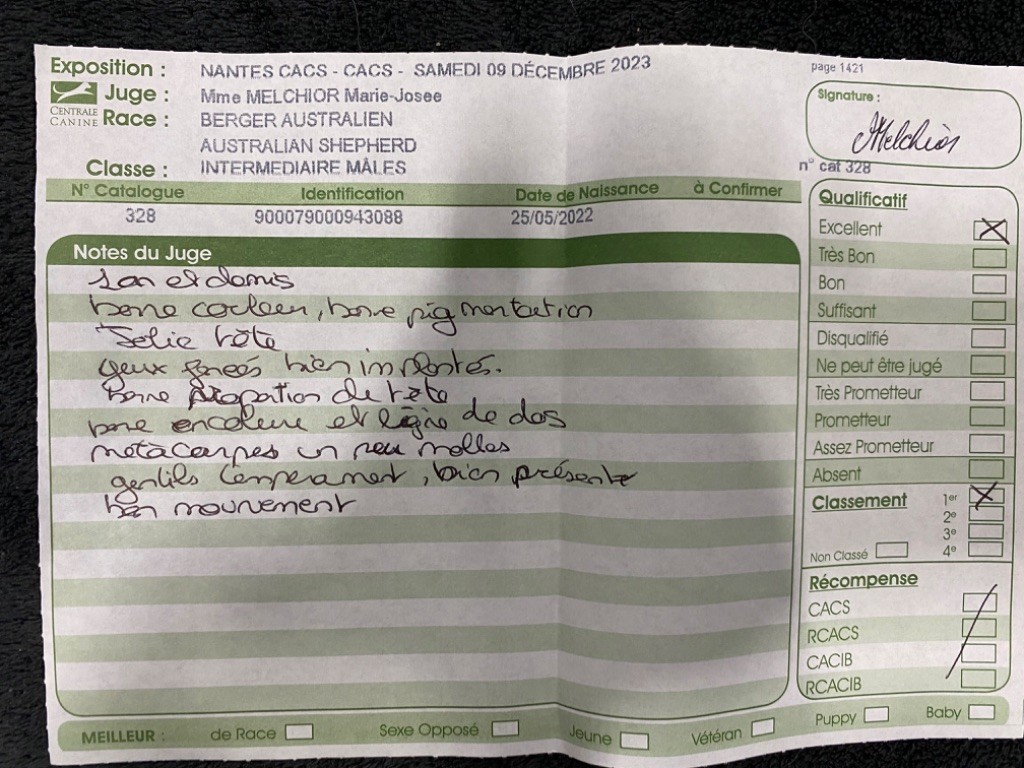 Exposition : NANTES CACS - CACS - SAMEDI 09 DÉCEMBRE 2023
page 1421
Juge : Mme MELCHIOR Marie-Josee
CENTRALE CANINE
Race : BERGER AUSTRALIEN
AUSTRALIAN SHEPHERD
Classe : INTERMEDIAIRE MÂLES
Signature :
Melchior
n° cat 328
N° Catalogue Identification Date de Naissance à Confirmer
328 900079000943088 25/05/2022
Notes du Juge
bonne couleur, bonne pigmentation
Jolie tête
yeux foncés bien implantés.
bonne de tête
bonne encolure et ligne de dos
métacarpes un peu molles
gentils temperament, bien présenté
bon mouvement
Qualificatif
Excellent
Très Bon
Bon
Suffisant
Disqualifié
Ne peut être jugé
Très Prometteur
Prometteur
Assez Prometteur
Absent
Classement 1er
2e
3e
Non Classé 4e
Récompense
CACS
RCACS
CACIB
RCACIB
MEILLEUR : de Race Sexe Opposé Jeune Vétéran Puppy Baby